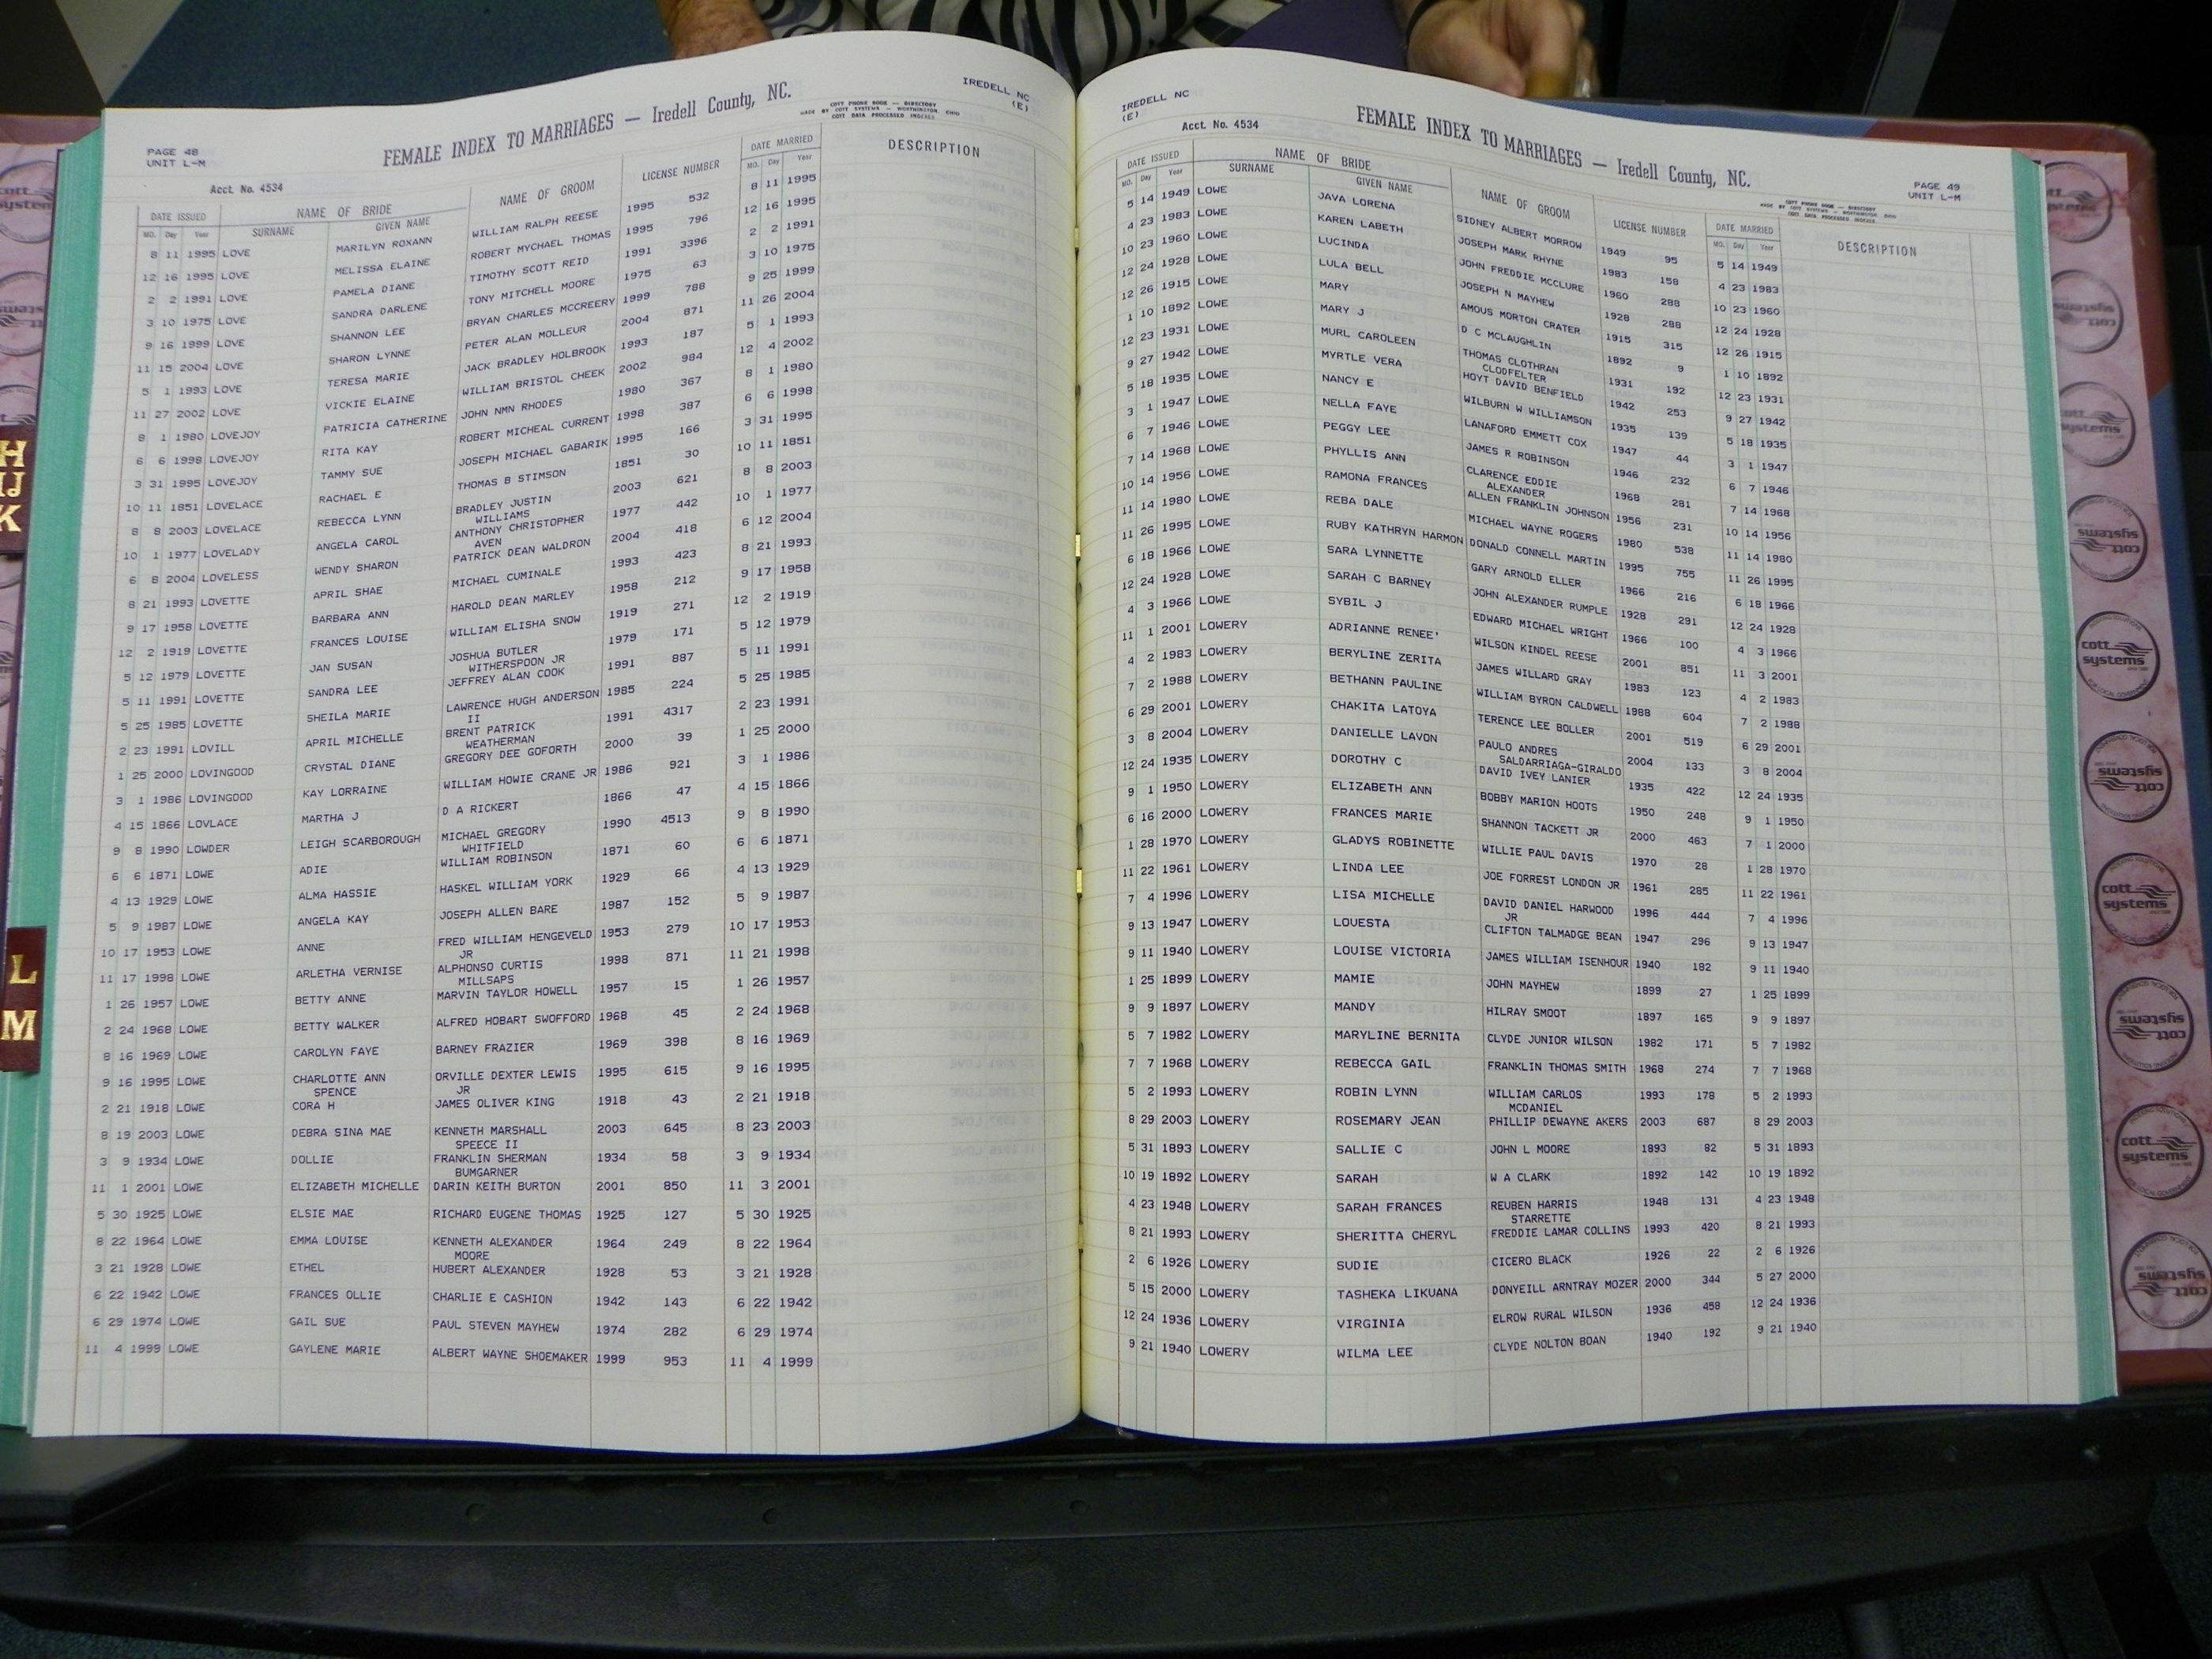 IREDELL NC
(E)
FEMALE INDEX TO MARRIAGES — Iredell County, NC.
COTT PHONE BOOK — DIRECTORY
MADE BY COTT SYSTEMS — WORTHINGTON, OHIO
COTT DATA PROCESSED INDEXES
PAGE 48
UNIT L-M
Acct. No. 4534
DATE ISSUED NAME OF BRIDE NAME OF GROOM LICENSE NUMBER DATE MARRIED DESCRIPTION
MO. Day Year SURNAME GIVEN NAME MO. Day Year
8 11 1995 LOVE MARILYN ROXANN WILLIAM RALPH REESE 1995 532 8 11 1995
12 16 1995 LOVE MELISSA ELAINE ROBERT MYCHAEL THOMAS 1995 796 12 16 1995
2 2 1991 LOVE PAMELA DIANE TIMOTHY SCOTT REID 1991 3396 2 2 1991
3 10 1975 LOVE SANDRA DARLENE TONY MITCHELL MOORE 1975 63 3 10 1975
9 16 1999 LOVE SHANNON LEE BRYAN CHARLES MCCREERY 1999 788 9 25 1999
11 15 2004 LOVE SHARON LYNNE PETER ALAN MOLLEUR 2004 871 11 26 2004
5 1 1993 LOVE TERESA MARIE JACK BRADLEY HOLBROOK 1993 187 5 1 1993
11 27 2002 LOVE VICKIE ELAINE WILLIAM BRISTOL CHEEK 2002 984 12 4 2002
8 1 1980 LOVEJOY PATRICIA CATHERINE JOHN NMN RHODES 1980 367 8 1 1980
6 6 1998 LOVEJOY RITA KAY ROBERT MICHEAL CURRENT 1998 387 6 6 1998
3 31 1995 LOVEJOY TAMMY SUE JOSEPH MICHAEL GABARIK 1995 166 3 31 1995
10 11 1851 LOVELACE RACHAEL E THOMAS B STIMSON 1851 30 10 11 1851
8 8 2003 LOVELACE REBECCA LYNN BRADLEY JUSTIN 2003 621 8 8 2003
WILLIAMS
10 1 1977 LOVELADY ANGELA CAROL ANTHONY CHRISTOPHER 1977 442 10 1 1977
AVEN
6 8 2004 LOVELESS WENDY SHARON PATRICK DEAN WALDRON 2004 418 6 12 2004
8 21 1993 LOVETTE APRIL SHAE MICHAEL CUMINALE 1993 423 8 21 1993
9 17 1958 LOVETTE BARBARA ANN HAROLD DEAN MARLEY 1958 212 9 17 1958
12 2 1919 LOVETTE FRANCES LOUISE WILLIAM ELISHA SNOW 1919 271 12 2 1919
5 12 1979 LOVETTE JAN SUSAN JOSHUA BUTLER 1979 171 5 12 1979
WITHERSPOON JR
5 11 1991 LOVETTE SANDRA LEE JEFFREY ALAN COOK 1991 887 5 11 1991
5 25 1985 LOVETTE SHEILA MARIE LAWRENCE HUGH ANDERSON 1985 224 5 25 1985
II
2 23 1991 LOVILL APRIL MICHELLE BRENT PATRICK 1991 4317 2 23 1991
WEATHERMAN
1 25 2000 LOVINGOOD CRYSTAL DIANE GREGORY DEE GOFORTH 2000 39 1 25 2000
3 1 1986 LOVINGOOD KAY LORRAINE WILLIAM HOWIE CRANE JR 1986 921 3 1 1986
4 15 1866 LOVLACE MARTHA J D A RICKERT 1866 47 4 15 1866
9 8 1990 LOWDER LEIGH SCARBOROUGH MICHAEL GREGORY 1990 4513 9 8 1990
WHITFIELD
6 6 1871 LOWE ADIE WILLIAM ROBINSON 1871 60 6 6 1871
4 13 1929 LOWE ALMA HASSIE HASKEL WILLIAM YORK 1929 66 4 13 1929
5 9 1987 LOWE ANGELA KAY JOSEPH ALLEN BARE 1987 152 5 9 1987
10 17 1953 LOWE ANNE FRED WILLIAM HENGEVELD 1953 279 10 17 1953
JR
11 17 1998 LOWE ARLETHA VERNISE ALPHONSO CURTIS 1998 871 11 21 1998
MILLSAPS
1 26 1957 LOWE BETTY ANNE MARVIN TAYLOR HOWELL 1957 15 1 26 1957
2 24 1968 LOWE BETTY WALKER ALFRED HOBART SWOFFORD 1968 45 2 24 1968
8 16 1969 LOWE CAROLYN FAYE BARNEY FRAZIER 1969 398 8 16 1969
9 16 1995 LOWE CHARLOTTE ANN ORVILLE DEXTER LEWIS 1995 615 9 16 1995
SPENCE JR
2 21 1918 LOWE CORA H JAMES OLIVER KING 1918 43 2 21 1918
8 19 2003 LOWE DEBRA SINA MAE KENNETH MARSHALL 2003 645 8 23 2003
SPEECE II
3 9 1934 LOWE DOLLIE FRANKLIN SHERMAN 1934 58 3 9 1934
BUMGARNER
11 1 2001 LOWE ELIZABETH MICHELLE DARIN KEITH BURTON 2001 850 11 3 2001
5 30 1925 LOWE ELSIE MAE RICHARD EUGENE THOMAS 1925 127 5 30 1925
8 22 1964 LOWE EMMA LOUISE KENNETH ALEXANDER 1964 249 8 22 1964
MOORE
3 21 1928 LOWE ETHEL HUBERT ALEXANDER 1928 53 3 21 1928
6 22 1942 LOWE FRANCES OLLIE CHARLIE E CASHION 1942 143 6 22 1942
6 29 1974 LOWE GAIL SUE PAUL STEVEN MAYHEW 1974 282 6 29 1974
11 4 1999 LOWE GAYLENE MARIE ALBERT WAYNE SHOEMAKER 1999 953 11 4 1999
IREDELL NC
(E)
Acct. No. 4534
FEMALE INDEX TO MARRIAGES — Iredell County, NC.
PAGE 49
UNIT L-M
COTT PHONE BOOK — DIRECTORY
MADE BY COTT SYSTEMS — WORTHINGTON, OHIO
COTT DATA PROCESSED INDEXES
DATE ISSUED NAME OF BRIDE NAME OF GROOM LICENSE NUMBER DATE MARRIED DESCRIPTION
MO. Day Year SURNAME GIVEN NAME MO. Day Year
5 14 1949 LOWE JAVA LORENA SIDNEY ALBERT MORROW 1949 95 5 14 1949
4 23 1983 LOWE KAREN LABETH JOSEPH MARK RHYNE 1983 158 4 23 1983
10 23 1960 LOWE LUCINDA JOHN FREDDIE MCCLURE 1960 288 10 23 1960
12 24 1928 LOWE LULA BELL JOSEPH N MAYHEW 1928 288 12 24 1928
12 26 1915 LOWE MARY AMOUS MORTON CRATER 1915 315 12 26 1915
1 10 1892 LOWE MARY J D C MCLAUGHLIN 1892 9 1 10 1892
12 23 1931 LOWE MURL CAROLEEN THOMAS CLOTHRAN 1931 192 12 23 1931
CLODFELTER
9 27 1942 LOWE MYRTLE VERA HOYT DAVID BENFIELD 1942 253 9 27 1942
5 18 1935 LOWE NANCY E WILBURN W WILLIAMSON 1935 139 5 18 1935
3 1 1947 LOWE NELLA FAYE LANAFORD EMMETT COX 1947 44 3 1 1947
6 7 1946 LOWE PEGGY LEE JAMES R ROBINSON 1946 232 6 7 1946
7 14 1968 LOWE PHYLLIS ANN CLARENCE EDDIE 1968 281 7 14 1968
ALEXANDER
10 14 1956 LOWE RAMONA FRANCES ALLEN FRANKLIN JOHNSON 1956 231 10 14 1956
11 14 1980 LOWE REBA DALE MICHAEL WAYNE ROGERS 1980 538 11 14 1980
11 26 1995 LOWE RUBY KATHRYN HARMON DONALD CONNELL MARTIN 1995 755 11 26 1995
6 18 1966 LOWE SARA LYNNETTE GARY ARNOLD ELLER 1966 216 6 18 1966
12 24 1928 LOWE SARAH C BARNEY JOHN ALEXANDER RUMPLE 1928 291 12 24 1928
4 3 1966 LOWE SYBIL J EDWARD MICHAEL WRIGHT 1966 100 4 3 1966
11 1 2001 LOWERY ADRIANNE RENEE' WILSON KINDEL REESE 2001 851 11 3 2001
4 2 1983 LOWERY BERYLINE ZERITA JAMES WILLARD GRAY 1983 123 4 2 1983
7 2 1988 LOWERY BETHANN PAULINE WILLIAM BYRON CALDWELL 1988 604 7 2 1988
6 29 2001 LOWERY CHAKITA LATOYA TERENCE LEE BOLLER 2001 519 6 29 2001
3 8 2004 LOWERY DANIELLE LAVON PAULO ANDRES 2004 133 3 8 2004
SALDARRIAGA-GIRALDO
12 24 1935 LOWERY DOROTHY C DAVID IVEY LANIER 1935 422 12 24 1935
9 1 1950 LOWERY ELIZABETH ANN BOBBY MARION HOOTS 1950 248 9 1 1950
6 16 2000 LOWERY FRANCES MARIE SHANNON TACKETT JR 2000 463 7 1 2000
1 28 1970 LOWERY GLADYS ROBINETTE WILLIE PAUL DAVIS 1970 28 1 28 1970
11 22 1961 LOWERY LINDA LEE JOE FORREST LONDON JR 1961 285 11 22 1961
7 4 1996 LOWERY LISA MICHELLE DAVID DANIEL HARWOOD 1996 444 7 4 1996
JR
9 13 1947 LOWERY LOUESTA CLIFTON TALMADGE BEAN 1947 296 9 13 1947
9 11 1940 LOWERY LOUISE VICTORIA JAMES WILLIAM ISENHOUR 1940 182 9 11 1940
1 25 1899 LOWERY MAMIE JOHN MAYHEW 1899 27 1 25 1899
9 9 1897 LOWERY MANDY HILRAY SMOOT 1897 165 9 9 1897
5 7 1982 LOWERY MARYLINE BERNITA CLYDE JUNIOR WILSON 1982 171 5 7 1982
7 7 1968 LOWERY REBECCA GAIL FRANKLIN THOMAS SMITH 1968 274 7 7 1968
5 2 1993 LOWERY ROBIN LYNN WILLIAM CARLOS 1993 178 5 2 1993
MCDANIEL
8 29 2003 LOWERY ROSEMARY JEAN PHILLIP DEWAYNE AKERS 2003 687 8 29 2003
5 31 1893 LOWERY SALLIE C JOHN L MOORE 1893 82 5 31 1893
10 19 1892 LOWERY SARAH W A CLARK 1892 142 10 19 1892
4 23 1948 LOWERY SARAH FRANCES REUBEN HARRIS 1948 131 4 23 1948
STARRETTE
8 21 1993 LOWERY SHERITTA CHERYL FREDDIE LAMAR COLLINS 1993 420 8 21 1993
2 6 1926 LOWERY SUDIE CICERO BLACK 1926 22 2 6 1926
5 15 2000 LOWERY TASHEKA LIKUANA DONYEILL ARNTRAY MOZER 2000 344 5 27 2000
12 24 1936 LOWERY VIRGINIA ELROW RURAL WILSON 1936 458 12 24 1936
9 21 1940 LOWERY WILMA LEE CLYDE NOLTON BOAN 1940 192 9 21 1940
H
IJ
K
L
M
cott
systems
cott
systems
cott
systems